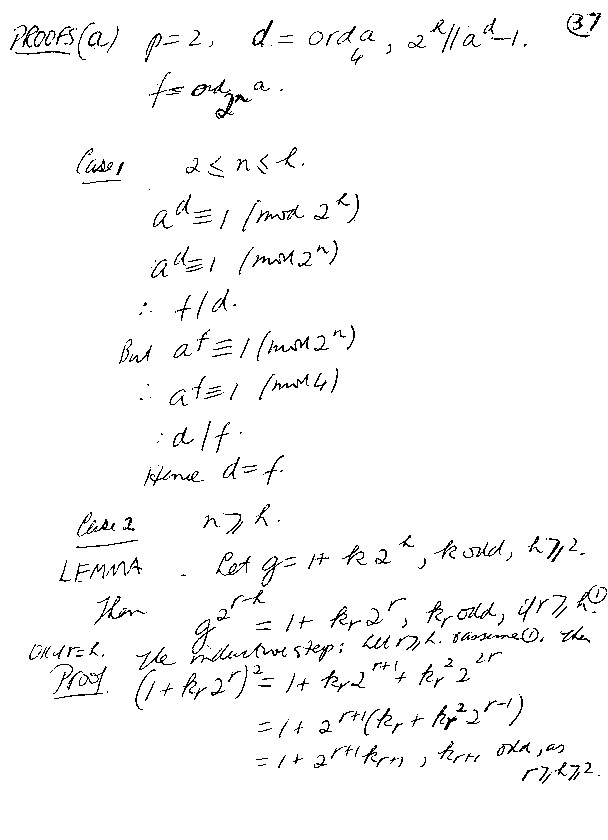 37
PROOFS (a) p=2, d = ord₄a, 2^h || a^d-1.
f = ord_{2^n} a.
Case 1 2 ≤ n ≤ h.
a^d ≡ 1 (mod 2^h)
a^d ≡ 1 (mod 2^n)
∴ f | d.
But a^f ≡ 1 (mod 2^n)
∴ a^f ≡ 1 (mod 4)
∴ d | f.
Hence d = f.
Case 2 n ≥ h.
LEMMA. Let g = 1 + k 2^h, k odd, h ≥ 2.
Then g^{2^{r-h}} = 1 + k_r 2^r, k_r odd, if r ≥ h. ①
OK if r=h. The inductive step: Let r ≥ h. & assume ①. Then
Proof. (1 + k_r 2^r)^2 = 1 + k_r 2^{r+1} + k_r^2 2^{2r}
= 1 + 2^{r+1}(k_r + k_r^2 2^{r-1})
= 1 + 2^{r+1} k_{r+1}, k_{r+1} odd, as
r ≥ h ≥ 2.